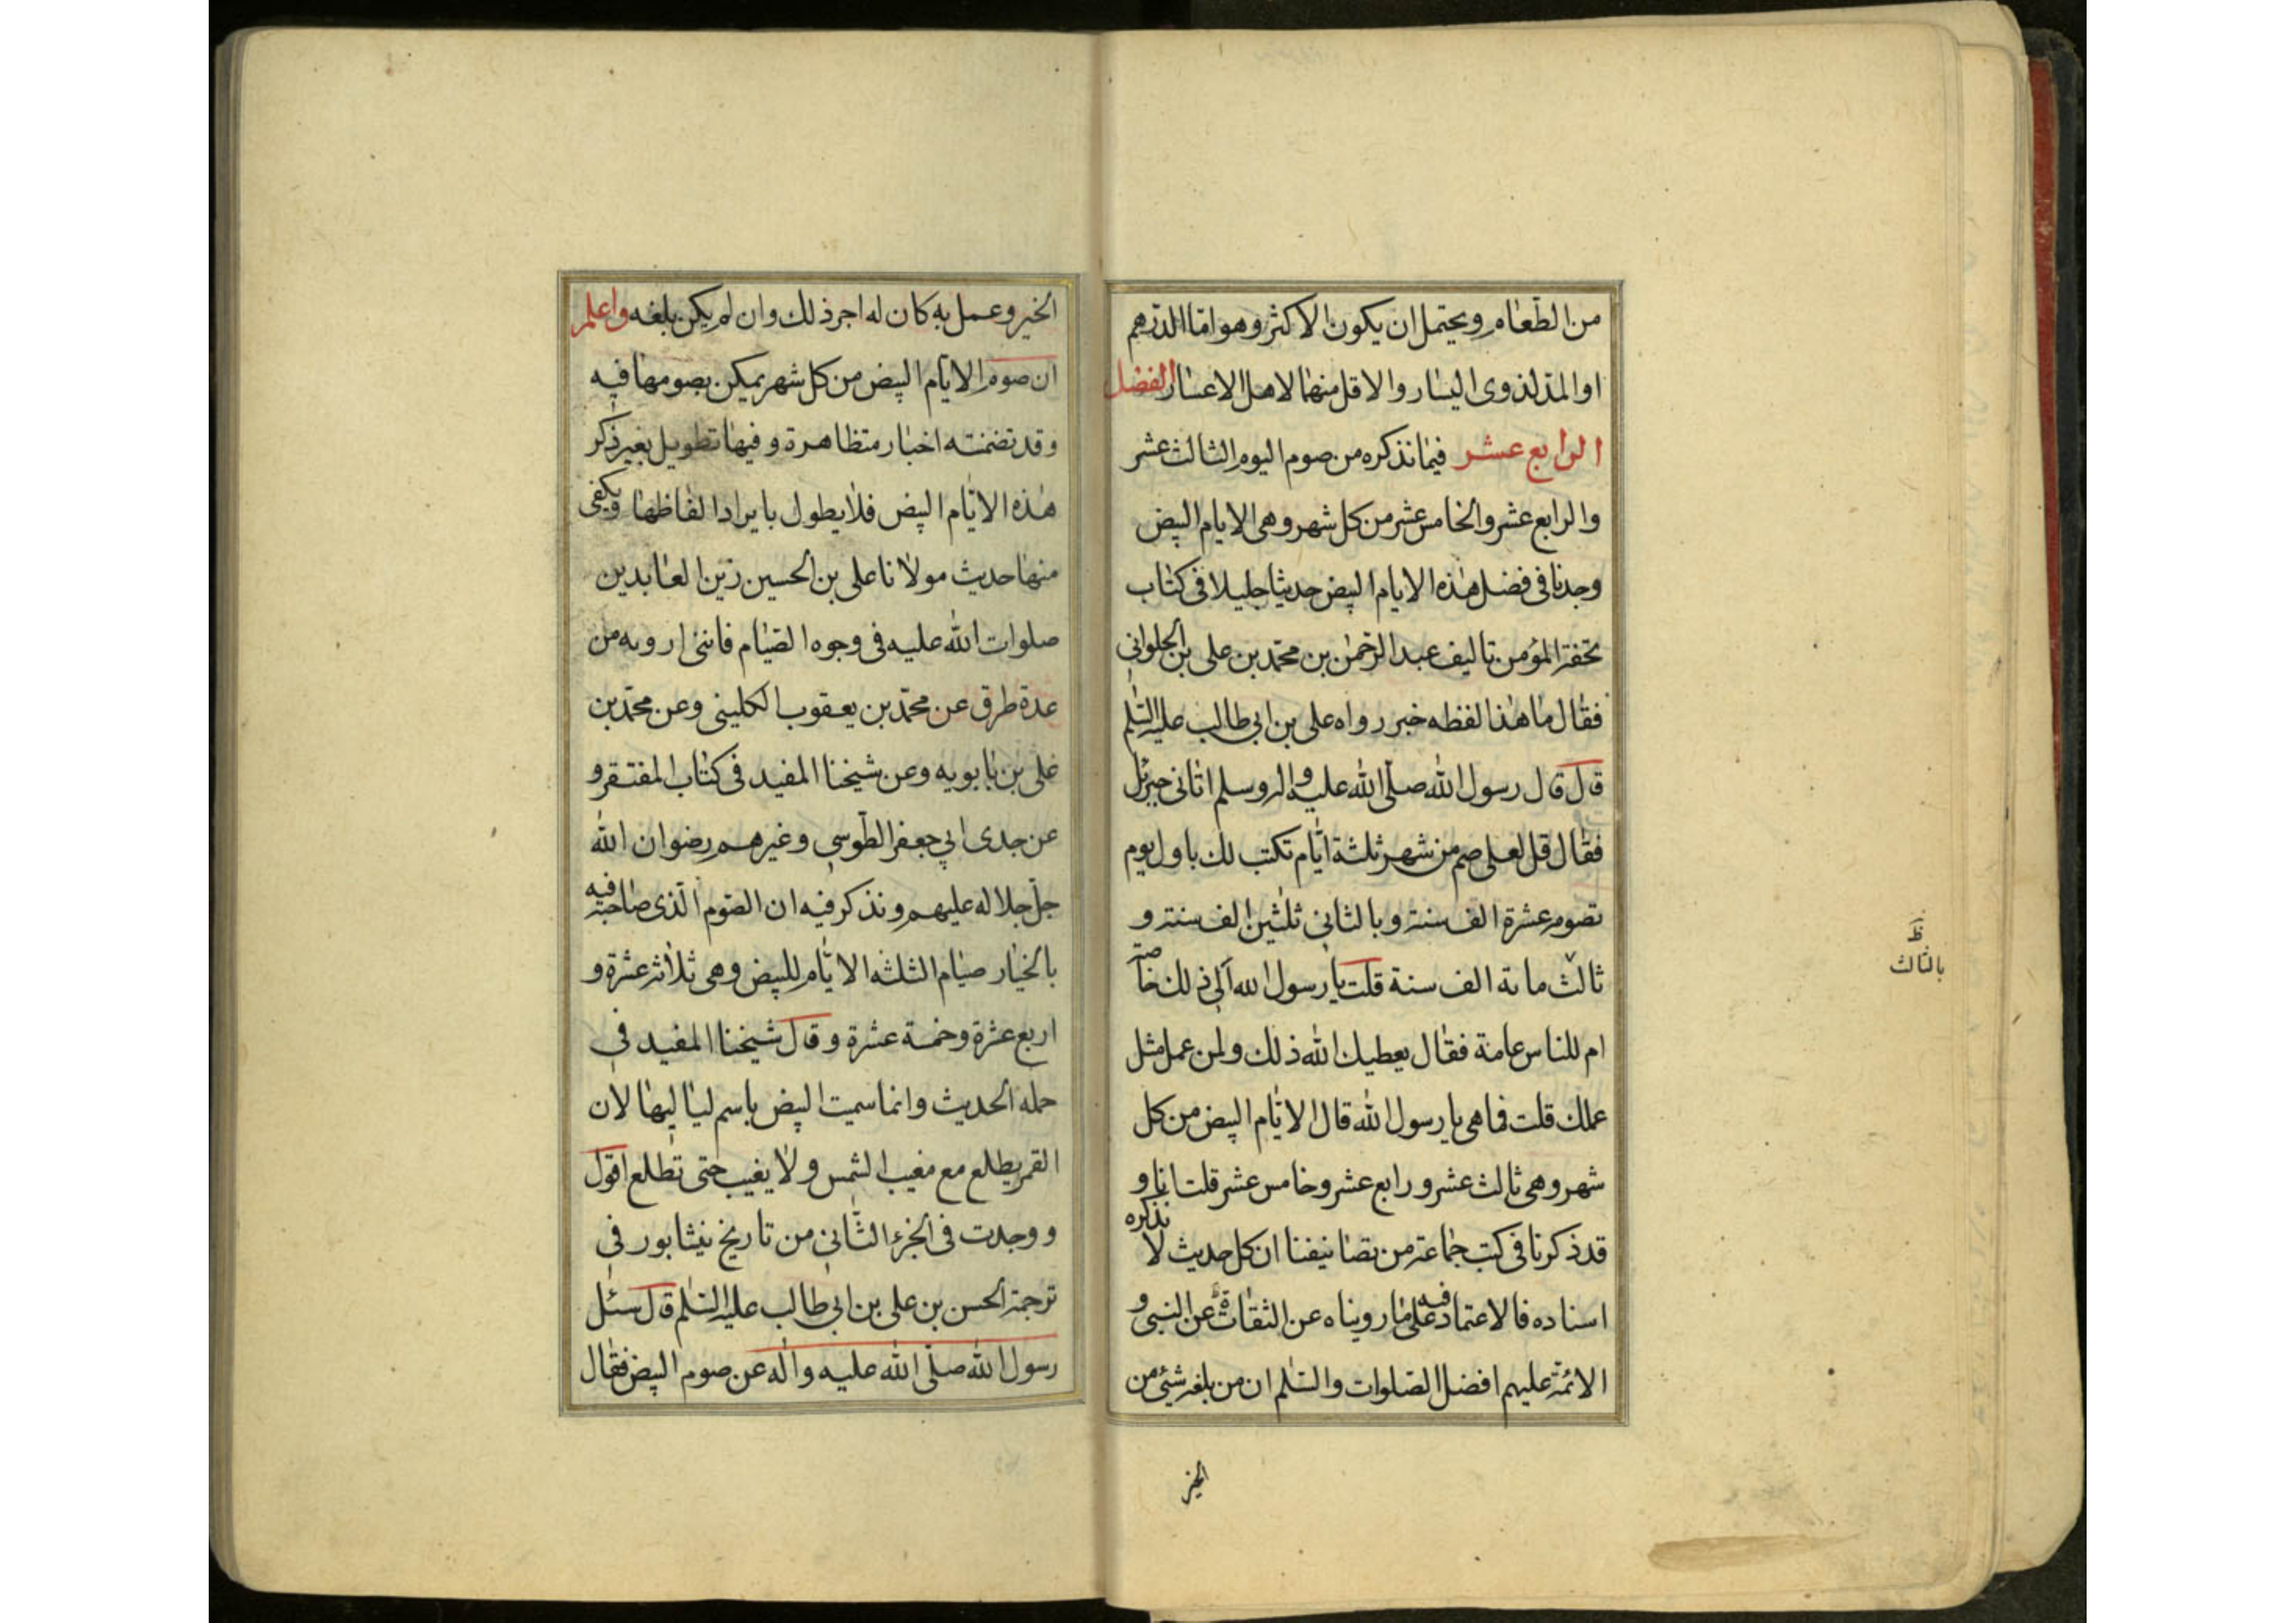 من الطّعام ويحتمل ان يكون الاكثر وهو امّا الدّرهم
او المدّ لذوى اليسار والاقل منهما لاهل الاعسار الفضل
الرابع عشر فيما نذكره من صوم اليوم الثالث عشر
والرابع عشر والخامس عشر من كل شهر وهى الايام البيض
وجدنا فى فضل هذه الايام البيض حديثا جليلا فى كتاب
تحفة المؤمن تاليف عبد الرّحمن بن محمّد بن على بن الحلوانى
فقال ما هذا لفظه خبر رواه على بن ابى طالب عليه السّلم
قال قال رسول الله صلّى الله عليه واله وسلم اتانى جبرئيل
فقال قل لعلى صم من شهر ثلثة ايّام تكتب لك باول يوم
تصومه عشرة الف سنة وبالثانى ثلثين الف سنة و
ثالث ماىة الف سنة قلت يا رسول الله الى ذلك خاصّة
ام للناس عامة فقال يعطيك الله ذلك ولمن عمل مثل
عملك قلت فما هى يا رسول الله قال الايّام البيض من كل
شهر وهى ثالث عشر ورابع عشر وخامس عشر قلت انا و
قد ذكرنا فى كتب جماعة من تصانيفنا ان كل حديث لا نذكره
اسناده فالاعتماد فيه على ما رويناه عن الثقاة عن النبى و
الائمّة عليهم افضل الصّلوات والسّلم ان من بلغه شيئ من
الخير
ظ
بالثالث
الخير وعمل به كان له اجر ذلك وان لم يكن بلغه واعلم
ان صوم الايّام البيض من كل شهر يمكن بصومها فيه
وقد تضمنته اخبار متظاهرة وفيها تطويل بغير ذكر
هذه الايّام البيض فلا يطول بايراد الفاظها ويكفى
منها حديث مولانا على بن الحسين زين العابدين
صلوات الله عليه فى وجوه الصّيام فاننى ارويه من
عدة طرق عن محمّد بن يعقوب الكلينى وعن محمّد بن
على بن بابويه وعن شيخنا المفيد فى كتاب المفتقر و
عن جدى ابى جعفر الطّوسى وغيرهم رضوان الله
جلّ جلاله عليهم ونذكر فيه ان الصّوم الّذى صاحبه فيه
بالخيار صيام الثلثه الايّام للبيض وهى ثلاثة عشرة و
اربع عشرة وخمسة عشرة وقال شيخنا المفيد فى
حمله الحديث وانما سميت البيض باسم لياليها لان
القمر يطلع مع مغيب الشّمس ولا يغيب حتى تطلع اقول
ووجدت فى الجزء الثّانى من تاريخ نيشابور فى
ترجمة الحسن بن على بن ابى طالب عليه السّلم قال سئل
رسول الله صلّى الله عليه واله عن صوم البيض فقال